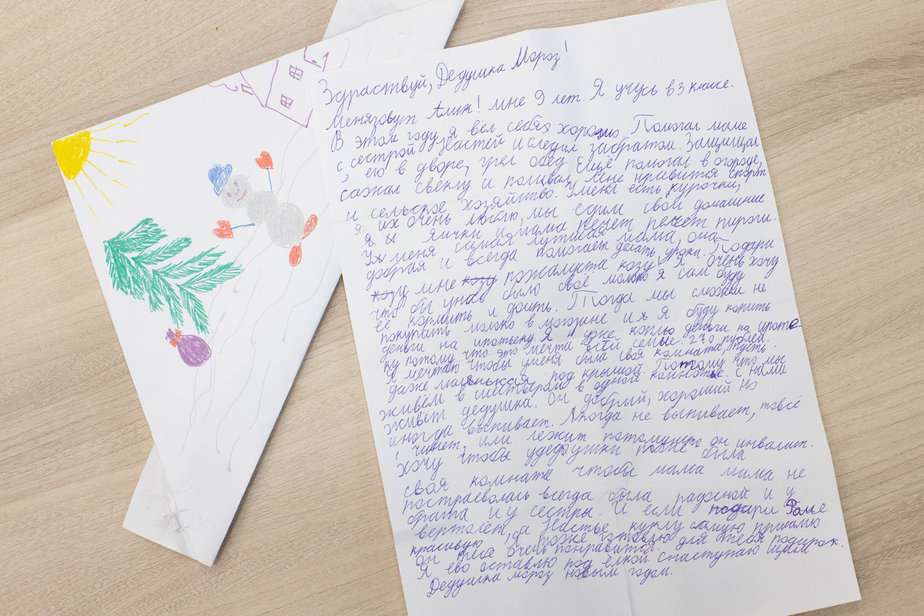 Здраствуй, Дедушка Мороз!
Менязовут Алик! мне 9 лет. Я учусь в 3 класе.
В этом году я вёл себя хорошо. Помогал маме
с сестрой Настей и следил забратом. Защищал
его в дворе, грел обед. Ещё помогал в огороде,
сажал свёклу и поливал. Мне нравится спорт
и сельское хозяйство. Уменя есть курочки,
я их очень люблю, мы едим свои домашние
яички и мама печет пироги.
Уменя самая лутшая мама, она
добрая и всегда помогает делать уроки. Подари
мне пожалуста козу очень хочу
что бы унас было своё молоко я сам буду
её кормить и доить. Тогда мы сможем не
покупать молоко в магазине и я буду копить
деньги на ипотеку я уже коплю деньги на ипоте
ку потому что это мечта всей семьи. 270 рублей.
Я мечтаю чтобы уменя была своя комната, пусть
даже маленькая под крышой. Потому что мы
живём в шестьвером в одной комнате. С нами
живёт дедушка. Он добрый, хороший но
иногда выпивает. Акогда не выпивает, товсё
чинет, или лежит потомушто он инвалит.
Хочу чтобы удедушки тоже была
своя комнате чтобы мама мама не
построеволась всегда была радосной и у
брата и у сестры. И если подари Роме
вертолёт, а Настье, куклу самую
красивую, я тоже готовлю для тебя подарок.
он тибе очень понравится.
Я ево оставлю под ёлкой снаступаю щим
Дедушка мороз новым годом.